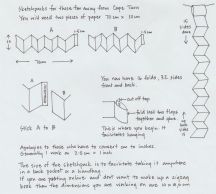 Sketchpocket for those far away from Cape Town
You will need two pieces of paper 70 cm x 10 cm
A
B
5cm
5cm
16 sides down
A
B
Stick A to B
You now have 16 folds, 32 sides
front and back.
cut off top
fold last two flaps
together and glue
This where you begin. It
facilitates hanging
Apologies to those who have to convert cm to inches.
1 inch = 2.5 cm
The size of the sketchpocket is to facilitate taking it anywhere
in a back pocket or a handbag.
If you are posting valuers and don't want to make up a zigzag
book then the dimensions you are working on are 10 x 5 cm